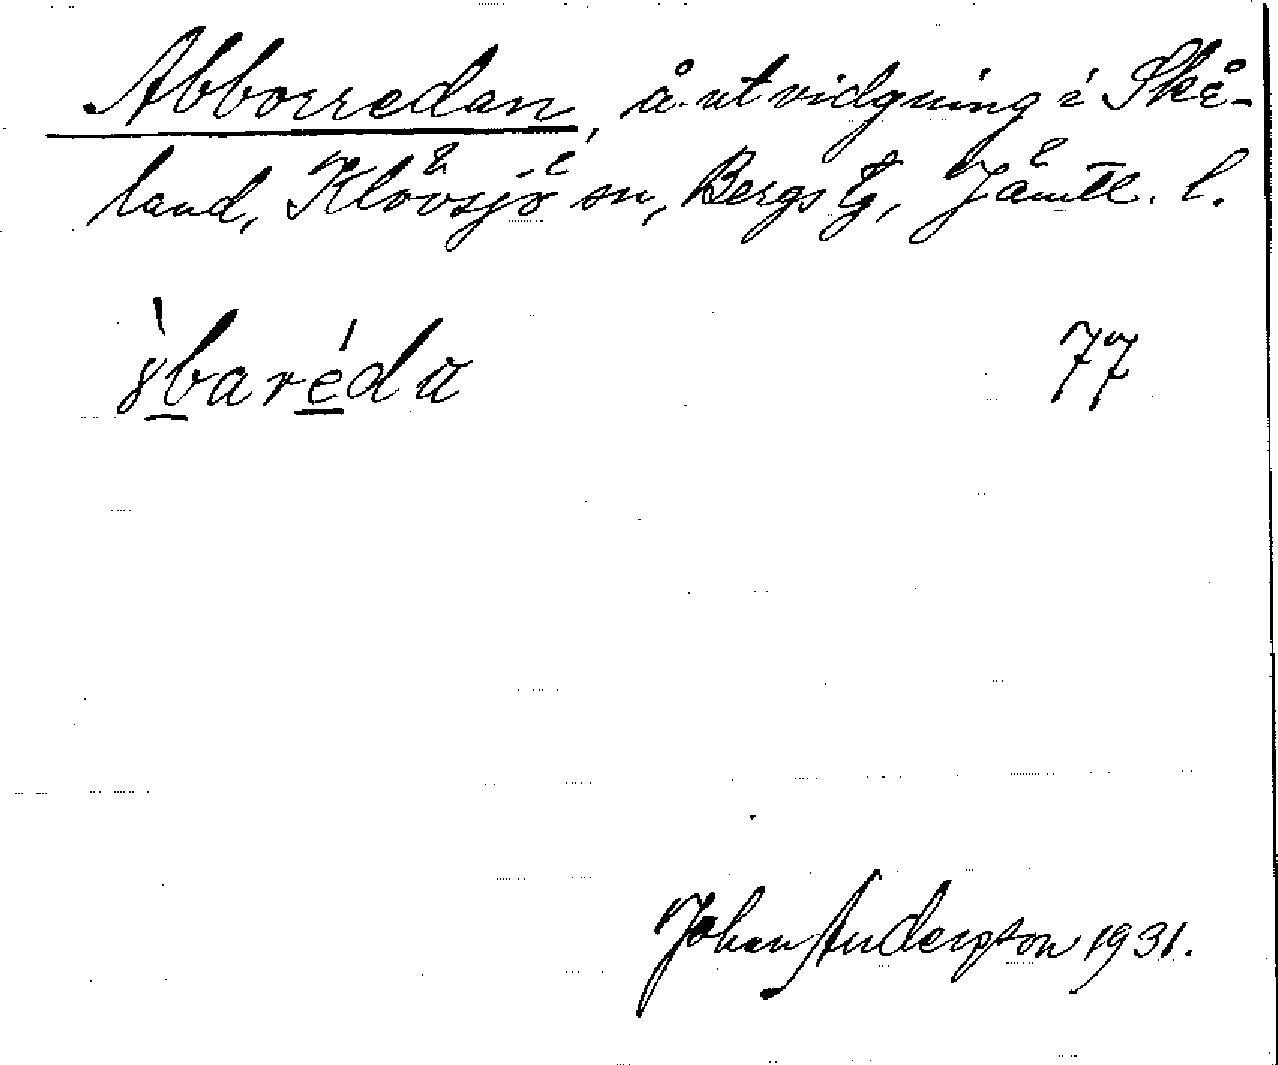 Abborredan, åutvidgning i Skå-
land, Klövsjö sn, Bergs tg, Jämtl. l.
ɣ̀baréda 77
Johan Anderson 1931.